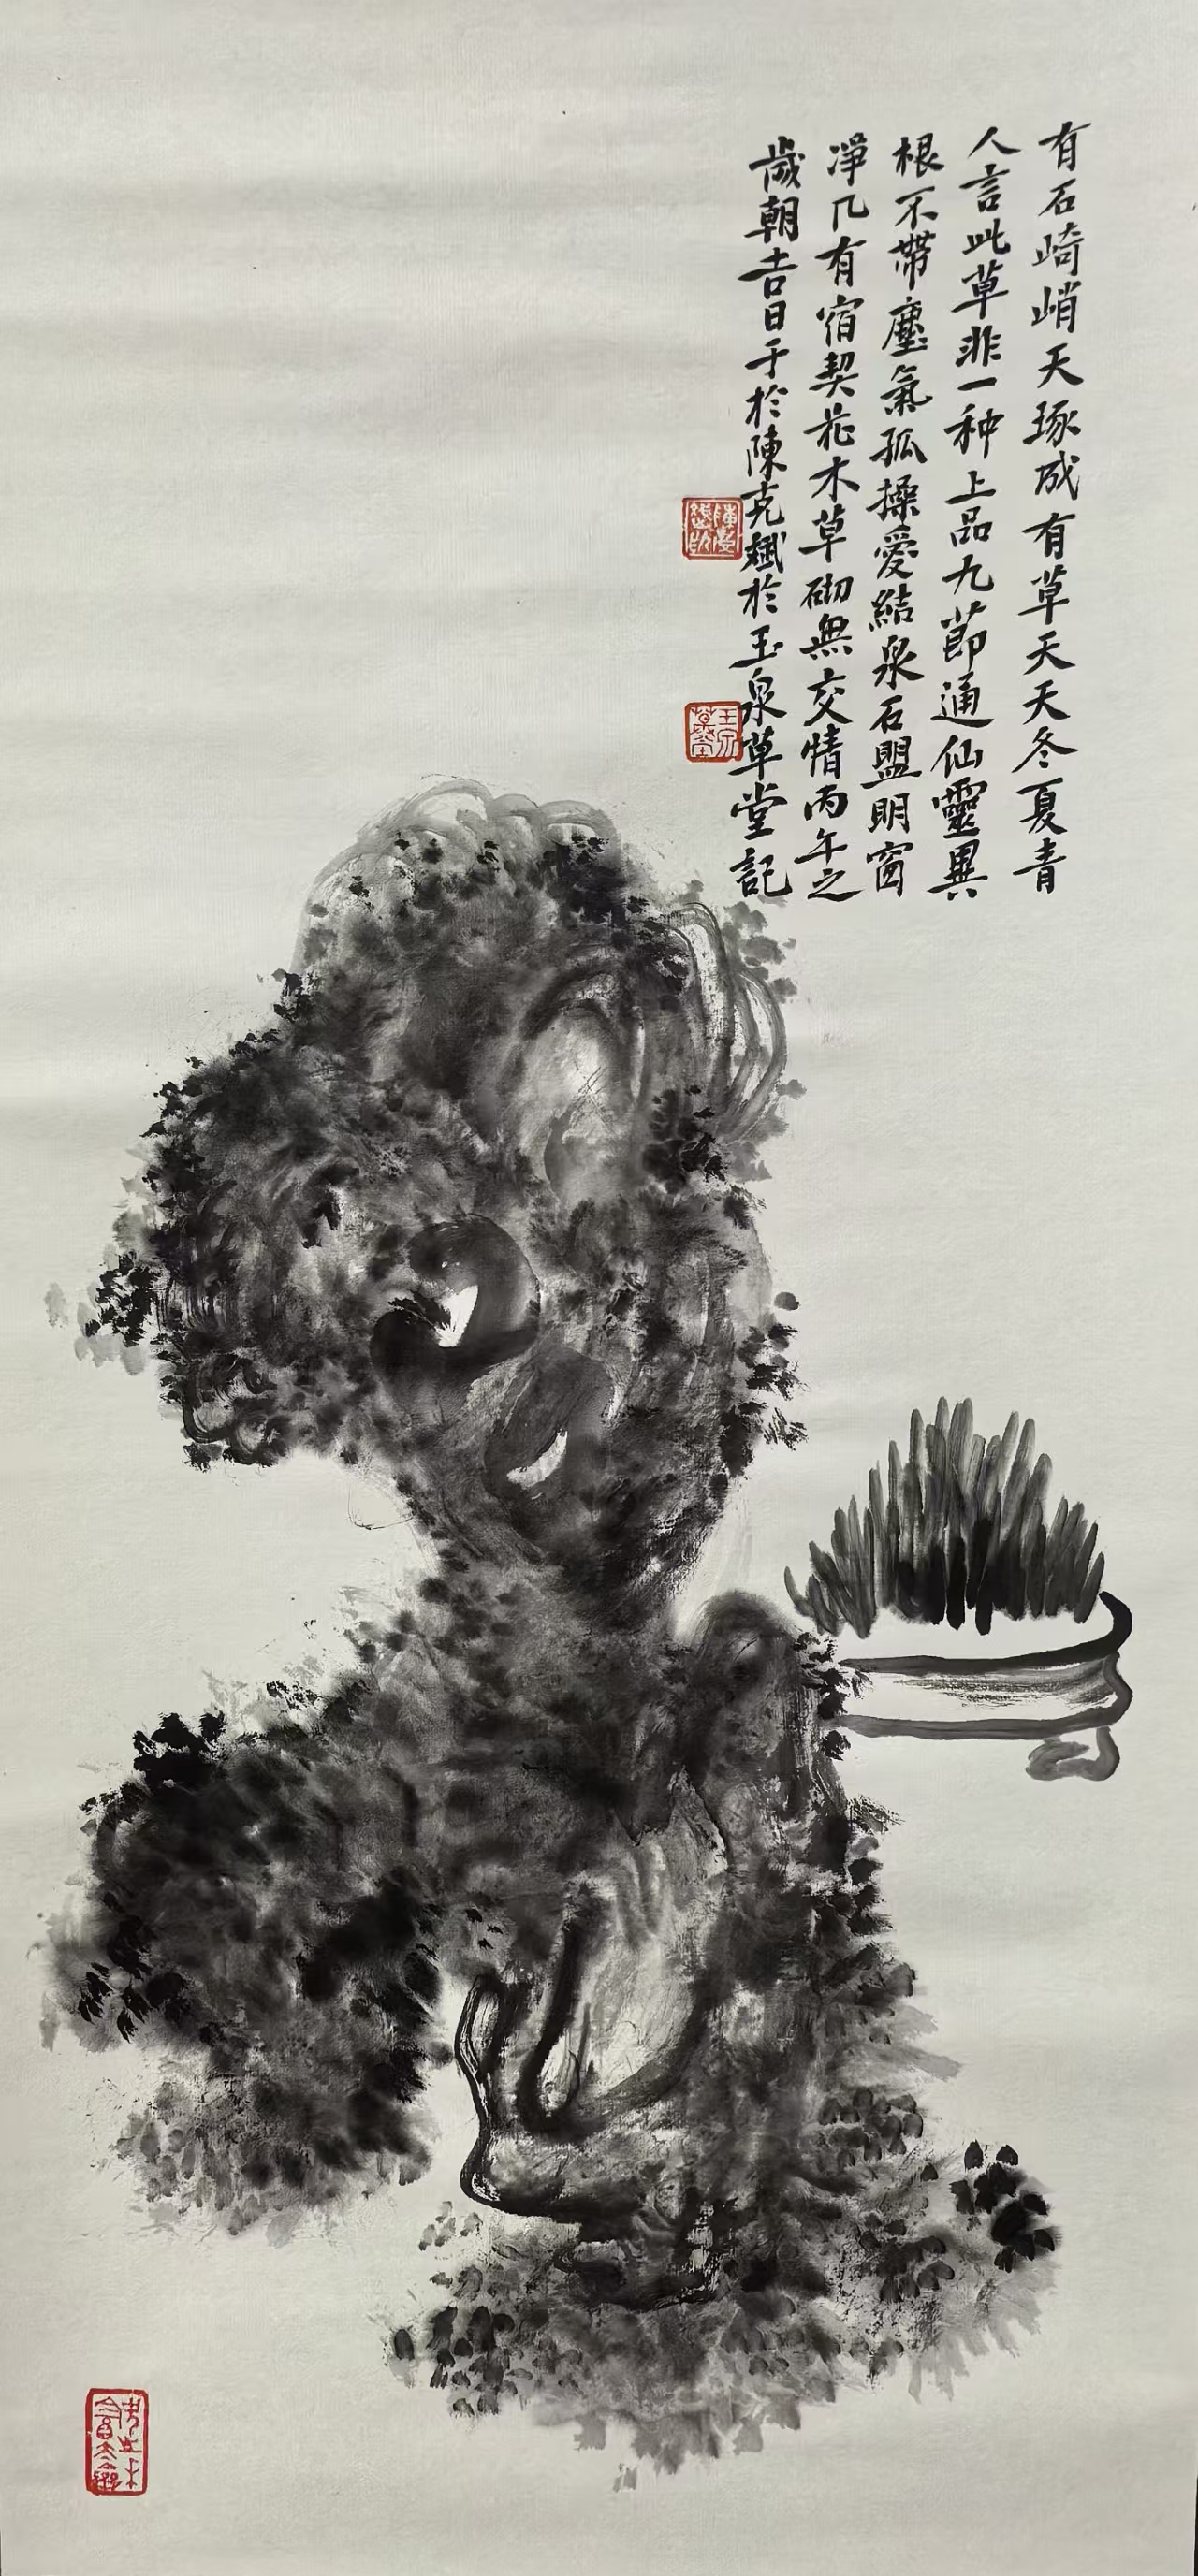 有石崎峭天琢成有草天天冬夏青
人言此草非一种上品九節通仙靈異
根不帶塵氣孤操愛結泉石盟明窗
凈几有宿契花木草砌無交情丙午之
歲朝吉日于於陳克斌於玉泉草堂記